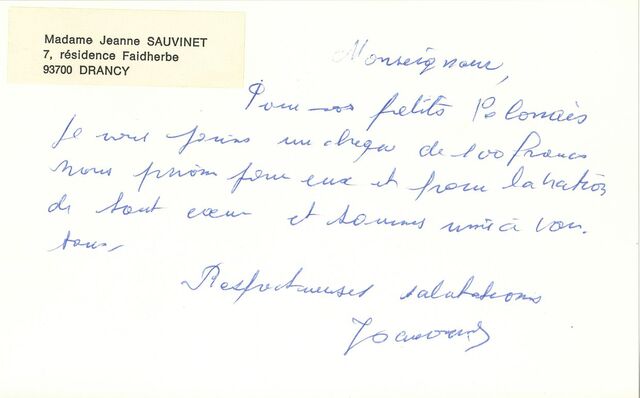 Madame Jeanne SAUVINET
7, résidence Faidherbe
93700 DRANCY
Monseigneur,
Pour nos petits Polonais
Je vous joins un chèque de 100 francs
Nous prions pour eux et pour la nation
de tout cœur et sommes unis à vous
tous,
Respectueuses salutations